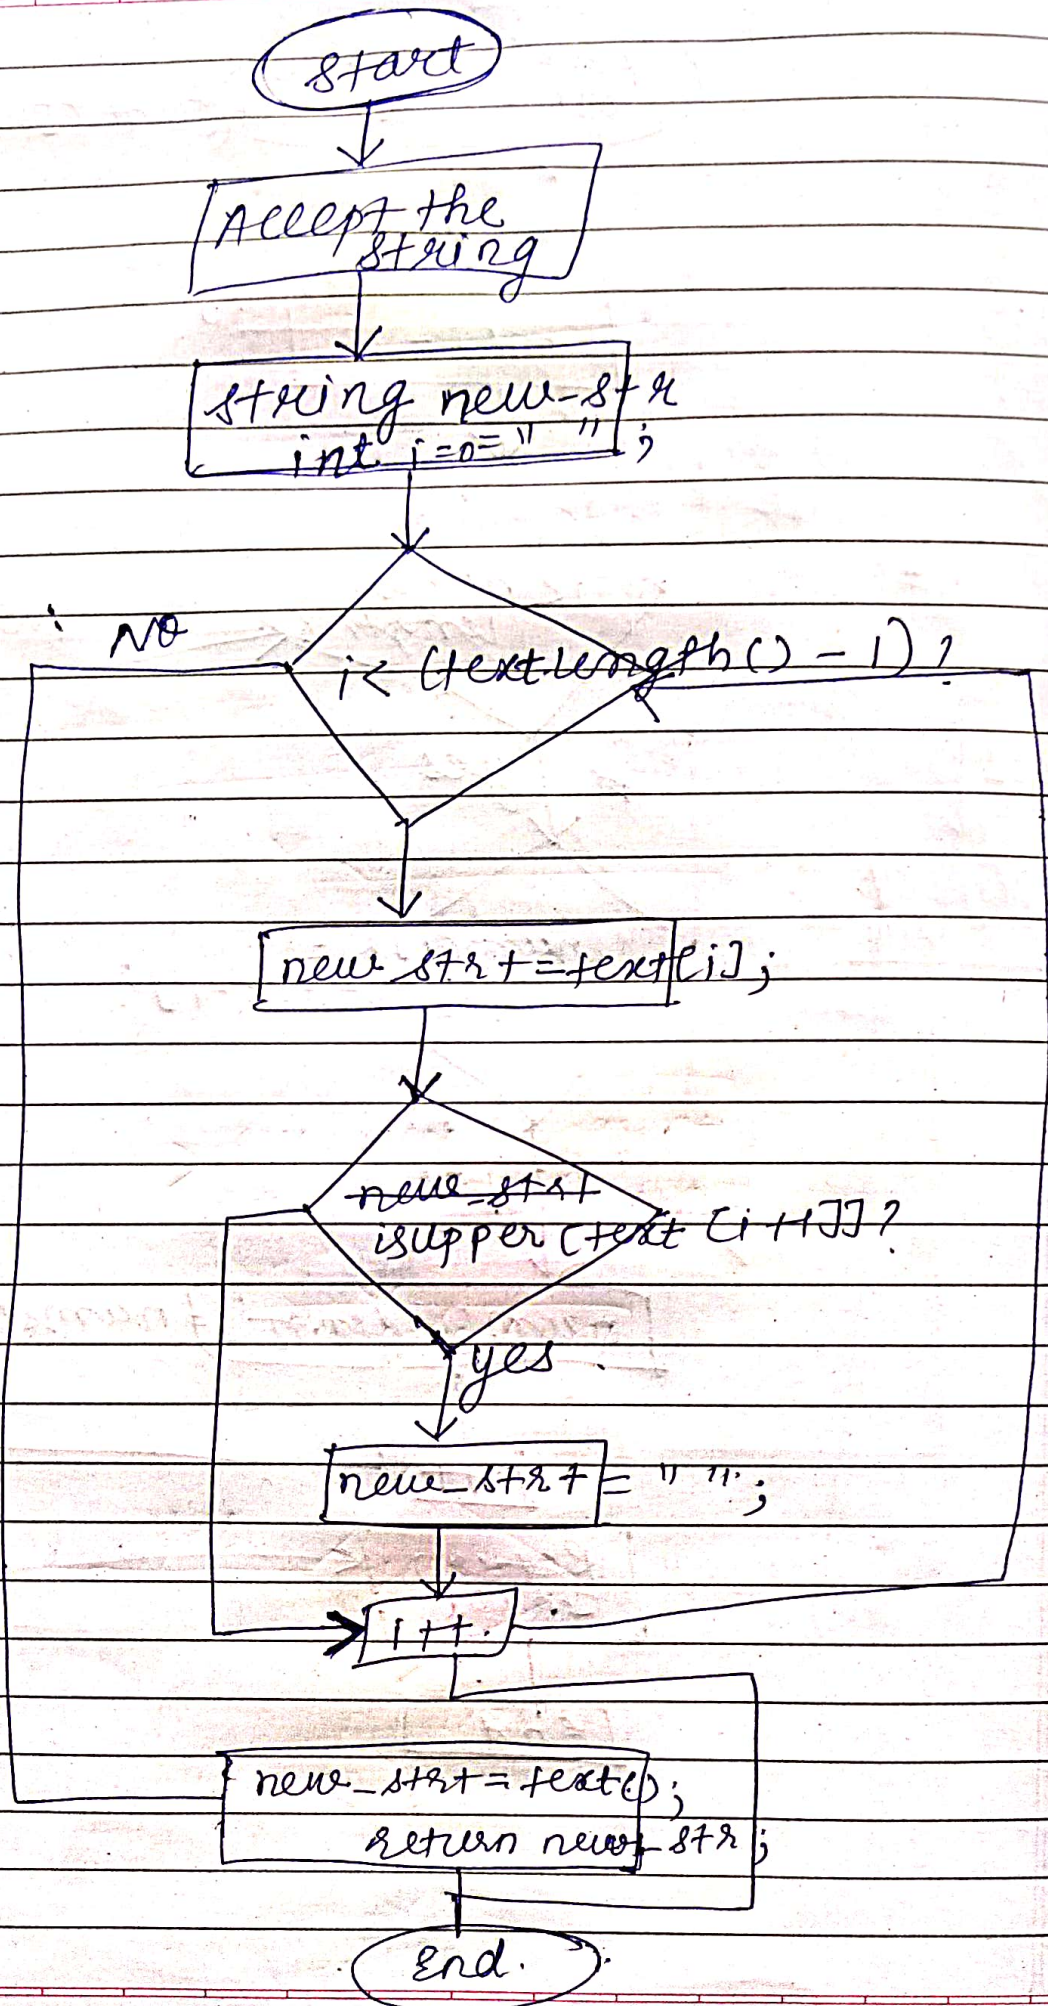 Start
Accept the
string
string new_str
int i=0 = " " ;
No
i < (text.length() - 1) ?
new_str+=text[i];
new_str+
isupper(text[i+1])?
yes
new_str+= " ";
i++.
new_str+=text();
return new_str;
End.